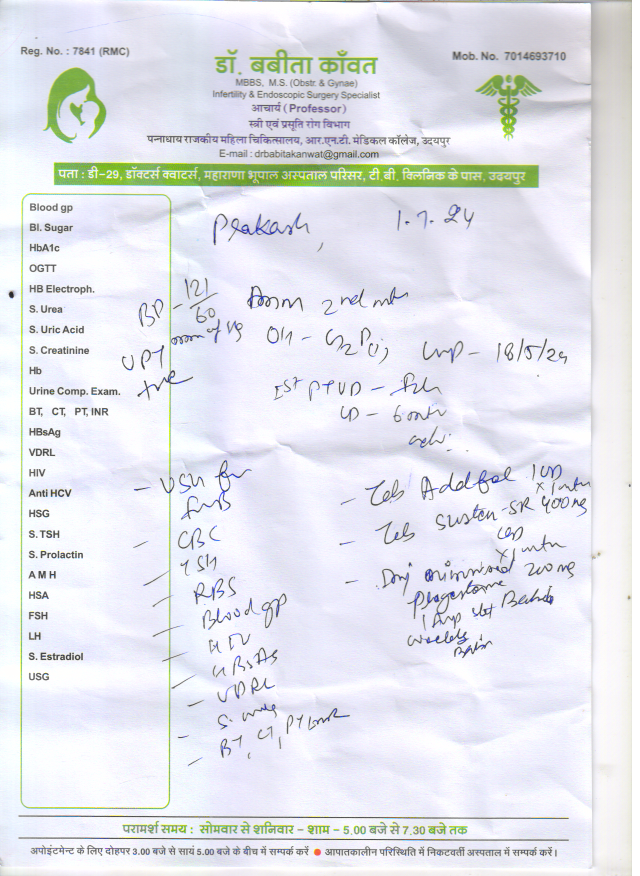 Reg. No. : 7841 (RMC)
Mob. No. 7014693710
डॉ. बबीता काँवत
MBBS, M.S. (Obstr. & Gynae)
Infertility & Endoscopic Surgery Specialist
आचार्य (Professor)
स्त्री एवं प्रसूति रोग विभाग
पन्नाधाय राजकीय महिला चिकित्सालय, आर.एन.टी. मेडिकल कॉलेज, उदयपुर
E-mail : drbabitakanwat@gmail.com
पता : डी-29, डॉक्टर्स क्वाटर्स, महाराणा भूपाल अस्पताल परिसर, टी.बी. क्लिनिक के पास, उदयपुर
Prakash, 1.7.24
Blood gp
Bl. Sugar
HbA1c
OGTT
HB Electroph.
S. Urea
S. Uric Acid
S. Creatinine
Hb
Urine Comp. Exam.
BT, CT, PT, INR
HBsAg
VDRL
HIV
Anti HCV
HSG
S. TSH
S. Prolactin
A M H
HSA
FSH
LH
S. Estradiol
USG
BP - 121/60
2nd mth
UPT
+ve
OH - G2P1
Lmp - 18/5/24
Ist PTVD -
LD - 6 mth
- USG for
- CBC
- TSH
- RBS
- Blood gp
- HIV
- HBsAg
- VDRL
- BT, CT, PT INR
- Tab 1 OD
x 1 mth
- Tab Susten-SR 400mg
OD
x 1 mth
- Inj 200mg
Progesterone
1 Amp
weekly
परामर्श समय : सोमवार से शनिवार - शाम - 5.00 बजे से 7.30 बजे तक
अपोइंटमेन्ट के लिए दोहपर 3.00 बजे से सायं 5.00 बजे के बीच में सम्पर्क करें ● आपातकालीन परिस्थिति में निकटवर्ती अस्पताल में सम्पर्क करें।